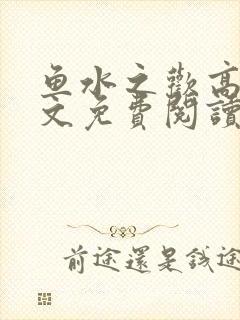 鱼水之歡高
文免費閱讀
前途還是錢途